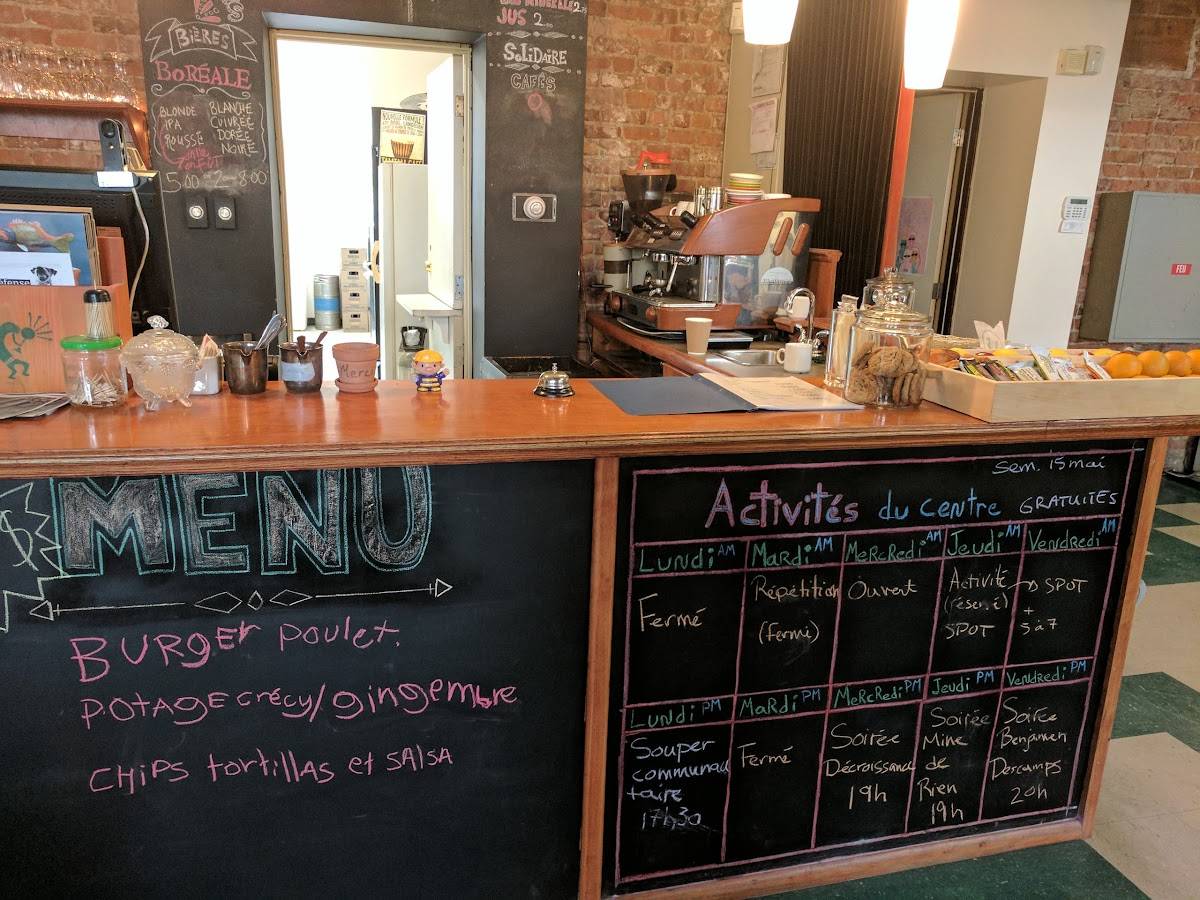 BIÈRES
BORÉALE
BLONDE BLANCHE
IPA CUIVRÉE
ROUSSE DORÉE
NOIRE
5.00 8.00
JUS 2.00
SOLIDAIRE
CAFÉS
NOUVELLE FORMULE
Merci
FEU
$
MENU
BURGER POULET.
POTAGE CRÉCY/gingembre
CHIPS tortillAS et SALSA
Sem. 15 mai
Activités du centre GRATUITES
Lundi AM Mardi AM MeRCRedi AM Jeudi AM Vendredi AM
Fermé
Répétition
(fermé)
Ouvert
Activité
(réservé)
SPOT
→ SPOT
+
5 à 7
Lundi PM MaRdi PM MeRCRedi PM Jeudi PM Vendredi PM
Souper
communau
taire
17h30
Fermé
Soirée
Décroissance
19h
Soirée
Mine
de
Rien
19h
Soirée
Benjamin
Descamps
20h